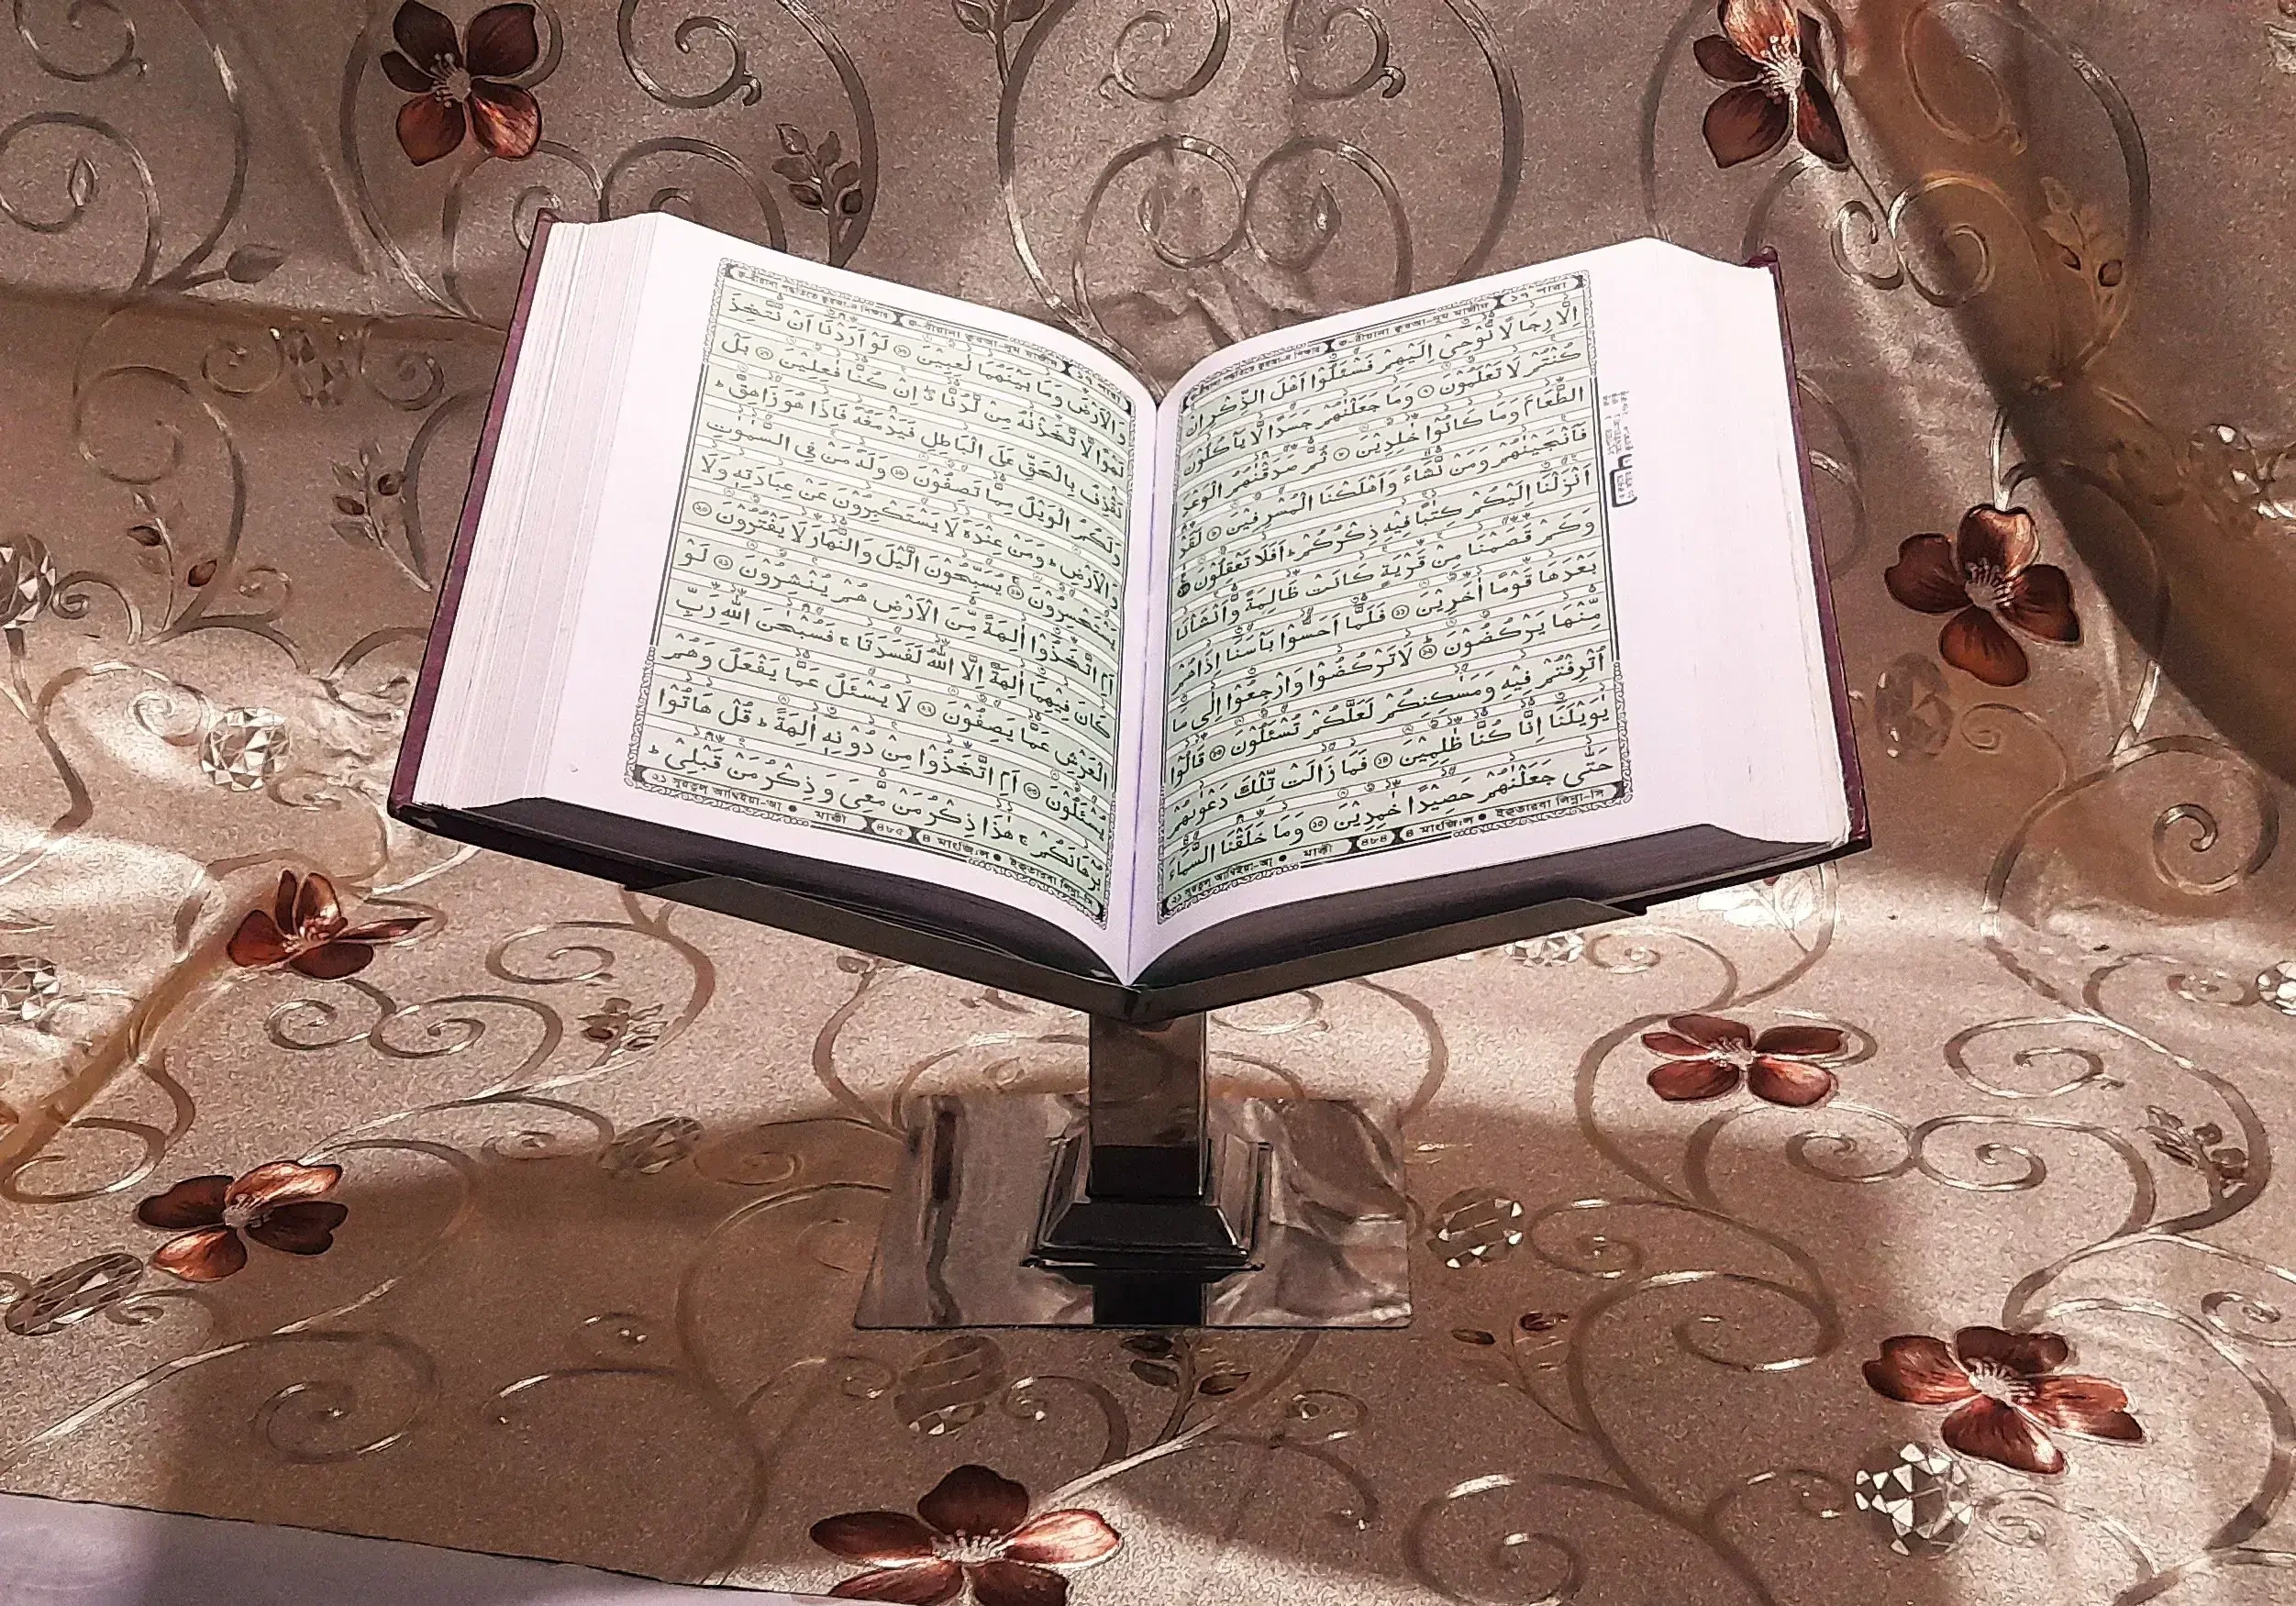 ১৭ পারা
اِلَّا رِجَالًا نُّوْحِيْۤ اِلَيْهِمْ فَسْـَٔلُوْۤا اَهْلَ الذِّكْرِ اِنْ
كُنْتُمْ لَا تَعْلَمُوْنَ ৭ وَمَا جَعَلْنٰهُمْ جَسَدًا لَّا يَاْكُلُوْنَ
الطَّعَامَ وَمَا كَانُوْا خٰلِدِيْنَ ৮ ثُمَّ صَدَقْنٰهُمُ الْوَعْدَ
فَاَنْجَيْنٰهُمْ وَمَنْ نَّشَآءُ وَاَهْلَكْنَا الْمُسْرِفِيْنَ ৯ لَقَدْ
اَنْزَلْنَاۤ اِلَيْكُمْ كِتٰبًا فِيْهِ ذِكْرُكُمْ ؕ اَفَلَا تَعْقِلُوْنَ ১০
وَكَمْ قَصَمْنَا مِنْ قَرْيَةٍ كَانَتْ ظَالِمَةً وَّاَنْشَاْنَا
بَعْدَهَا قَوْمًا اٰخَرِيْنَ ১১ فَلَمَّاۤ اَحَسُّوْا بَاْسَنَاۤ اِذَا هُمْ
مِّنْهَا يَرْكُضُوْنَ ১২ لَا تَرْكُضُوْا وَارْجِعُوْۤا اِلٰى مَاۤ
اُتْرِفْتُمْ فِيْهِ وَمَسٰكِنِكُمْ لَعَلَّكُمْ تُسْـَٔلُوْنَ ১৩ قَالُوْا
يٰوَيْلَنَاۤ اِنَّا كُنَّا ظٰلِمِيْنَ ১৪ فَمَا زَالَتْ تِّلْكَ دَعْوٰىهُمْ
حَتّٰى جَعَلْنٰهُمْ حَصِيْدًا خٰمِدِيْنَ ১৫ وَمَا خَلَقْنَا السَّمَآءَ
মাক্কী ৪৮৪ ৪ মানযিল
১৭ পারা
وَالْاَرْضَ وَمَا بَيْنَهُمَا لٰعِبِيْنَ ১৬ لَوْ اَرَدْنَاۤ اَنْ نَّتَّخِذَ
لَهْوًا لَّاتَّخَذْنٰهُ مِنْ لَّدُنَّاۤ ۖ اِنْ كُنَّا فٰعِلِيْنَ ১৭ بَلْ
نَقْذِفُ بِالْحَقِّ عَلَى الْبَاطِلِ فَيَدْمَغُهٗ فَاِذَا هُوَ زَاهِقٌ ؕ
وَلَكُمُ الْوَيْلُ مِمَّا تَصِفُوْنَ ১৮ وَلَهٗ مَنْ فِى السَّمٰوٰتِ
وَالْاَرْضِ ؕ وَمَنْ عِنْدَهٗ لَا يَسْتَكْبِرُوْنَ عَنْ عِبَادَتِهٖ وَلَا
يَسْتَحْسِرُوْنَ ১৯ يُسَبِّحُوْنَ الَّيْلَ وَالنَّهَارَ لَا يَفْتُرُوْنَ ২০
اَمِ اتَّخَذُوْۤا اٰلِهَةً مِّنَ الْاَرْضِ هُمْ يُنْشِرُوْنَ ২১ لَوْ
كَانَ فِيْهِمَاۤ اٰلِهَةٌ اِلَّا اللّٰهُ لَفَسَدَتَا ۚ فَسُبْحٰنَ اللّٰهِ رَبِّ
الْعَرْشِ عَمَّا يَصِفُوْنَ ২২ لَا يُسْـَٔلُ عَمَّا يَفْعَلُ وَهُمْ
يُسْـَٔلُوْنَ ২৩ اَمِ اتَّخَذُوْا مِنْ دُوْنِهٖۤ اٰلِهَةً ؕ قُلْ هَاتُوْا
بُرْهَانَكُمْ ۚ هٰذَا ذِكْرُ مَنْ مَّعِيَ وَذِكْرُ مَنْ قَبْلِيْ ؕ
মাক্কী ৪৮৫ ৪ মানযিল